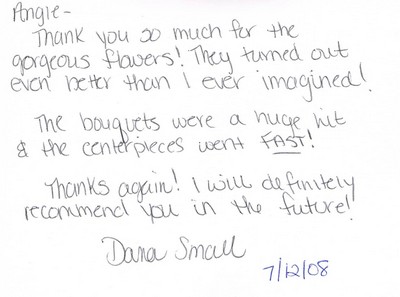 Angie-
Thank you so much for the
gorgeous flowers! They turned out
even better than I ever imagined!
The bouquets were a huge hit
& the centerpieces went FAST!
Thanks again! I will definitely
recommend you in the future!
Dana Small
7/12/08